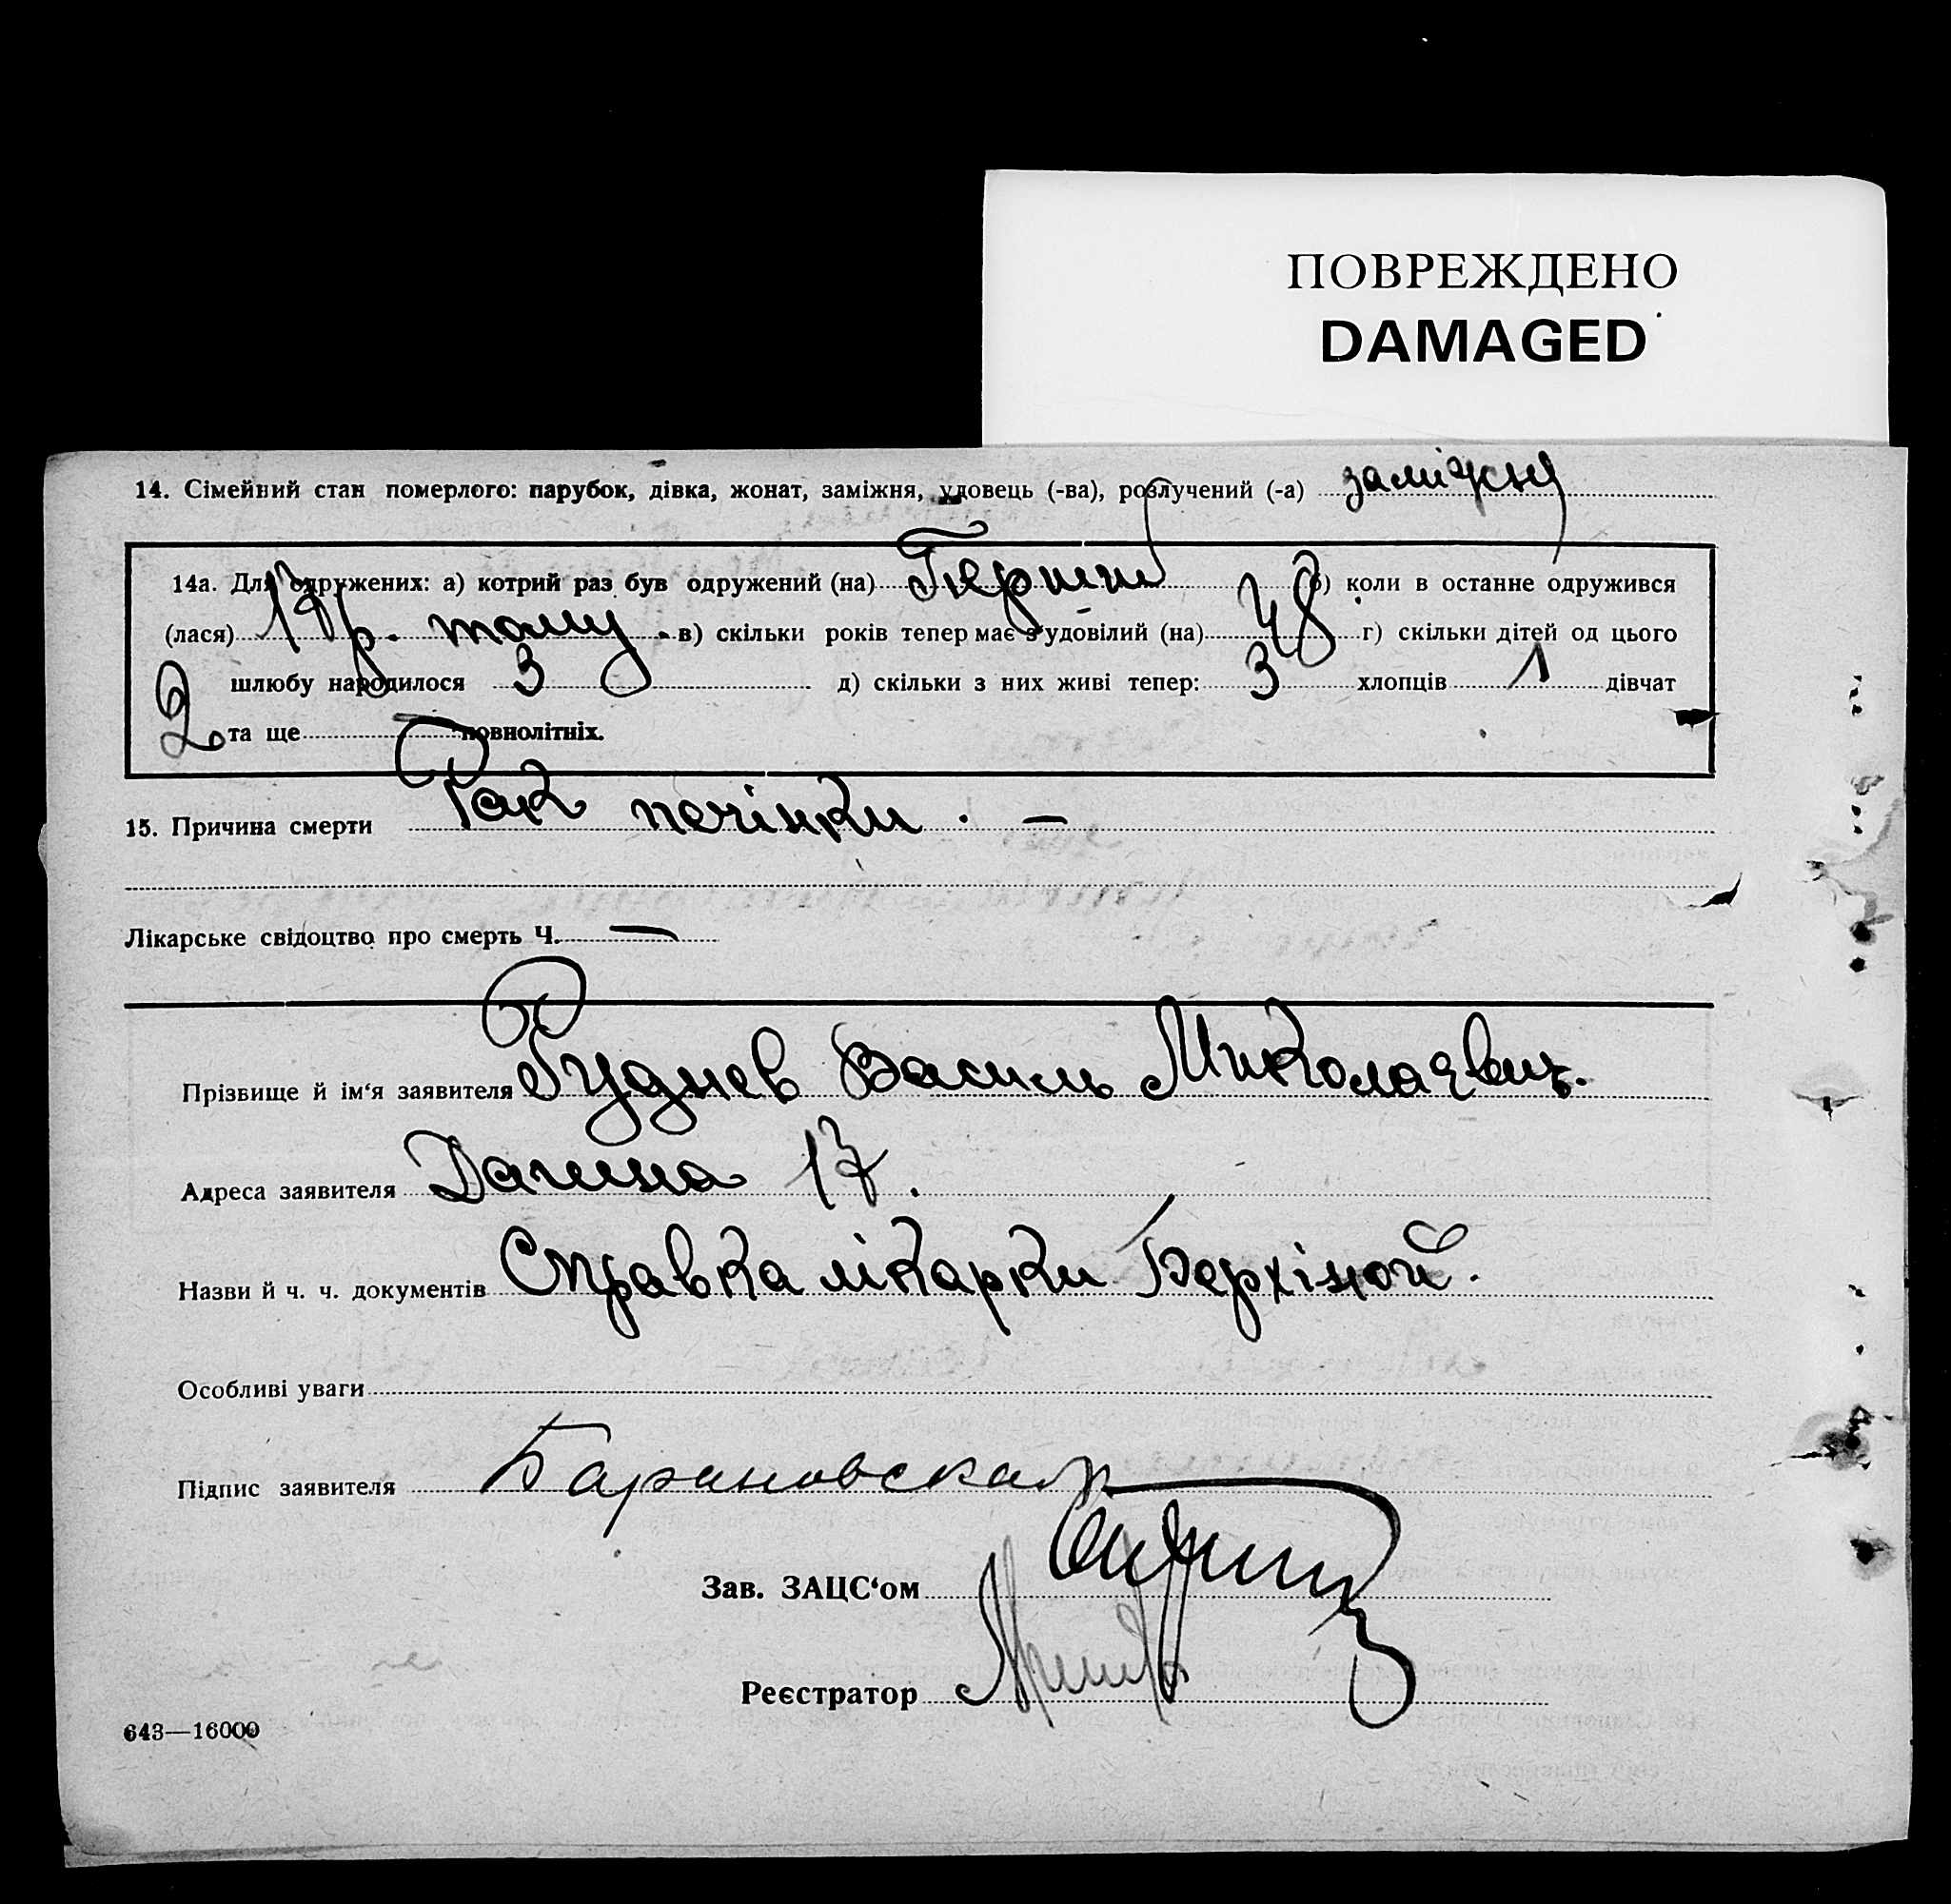 ПОВРЕЖДЕНО
DAMAGED
14. Сімейний стан померлого: парубок, дівка, жонат, заміжня, удовець (-ва), розлучений (-а) заміжня
14а. Для одружених: а) котрий раз був одружений (на) Перший б) коли в останне одружився
(лася) тому в) скільки років тепер має з удовілий (на) 48 г) скільки дітей од цього
шлюбу народилося 3 д) скільки з них живі тепер: 3 хлопців 1 дівчат
2 та ще — повнолітніх.
15. Причина смерти Рак печінки. —
Лікарське свідоцтво про смерть Ч. —
Прізвище й ім‘я заявителя Руднев Василь Миколаєвич.
Адреса заявителя 17.
Назви й ч. ч. документів Справка лікарки Верхіной.
Особливі уваги
Підпис заявителя Барановская
Зав. ЗАЦС‘ом
Реєстратор
643—16000